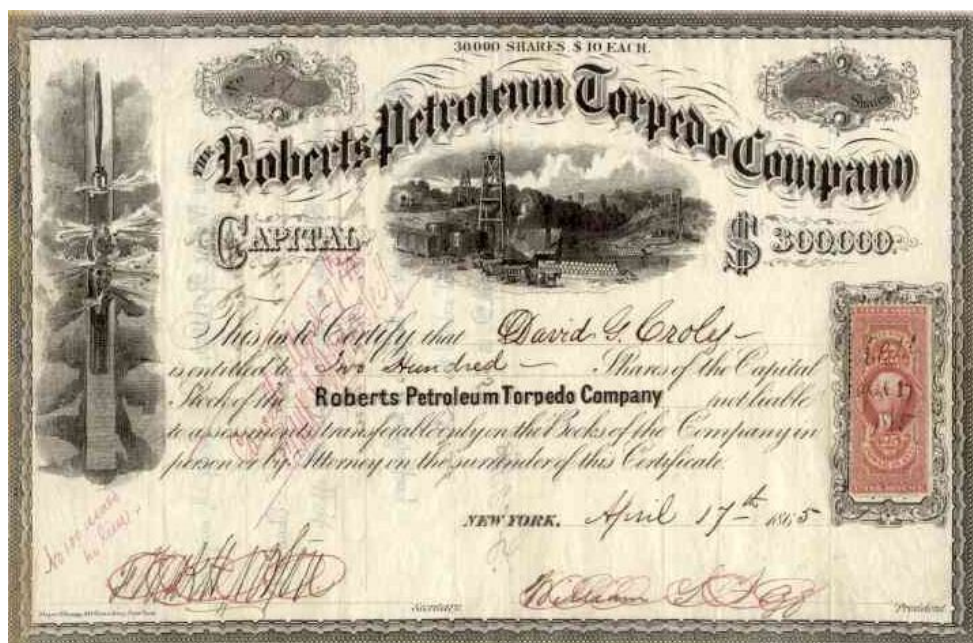 30.000 SHARES $10 EACH.
No
Shares
THE Roberts Petroleum Torpedo Company
CAPITAL $300.000.
This is to Certify that David G. Croly
is entitled to Two Hundred Shares of the Capital
Stock of the Roberts Petroleum Torpedo Company not liable
to assessments, transferable only on the Books of the Company in
person or by Attorney on the surrender of this Certificate.
NEW YORK, April 17th 1865
25
William
Secretary.
President